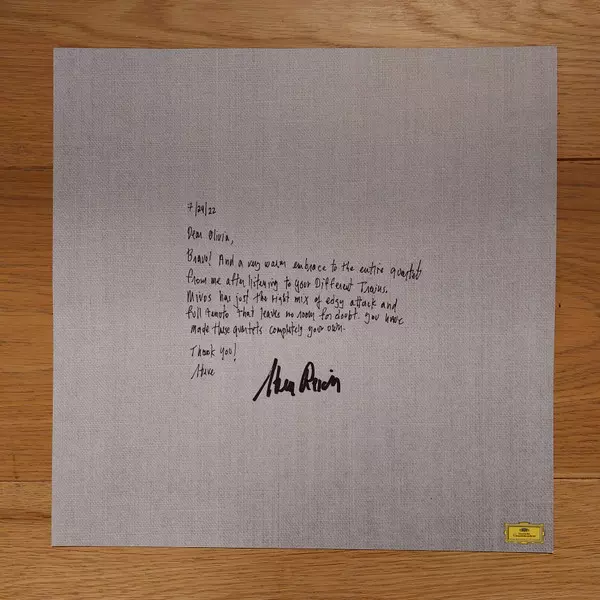 7/24/22
Dear Olivia,
Bravo! And a very warm embrace to the entire quartet
from me after listening to your Different Trains.
Mivos has just the right mix of edgy attack and
full tenuto that leaves no room for doubt. You have
made these quartets completely your own.
Thank you!
Steve
Steve Reich
Deutsche
Grammophon